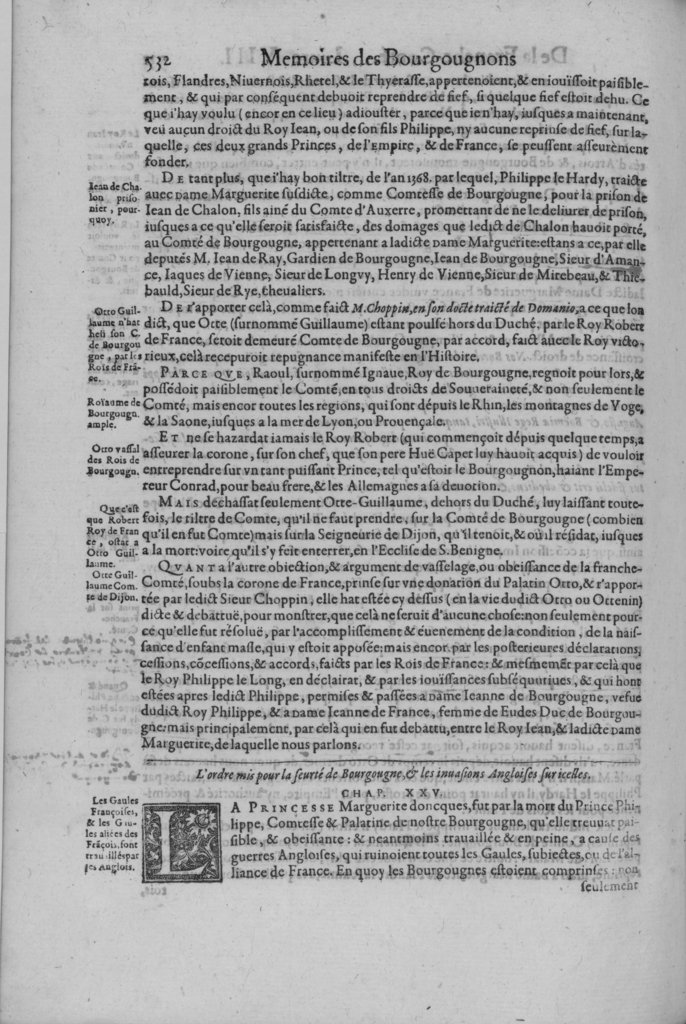 532 Memoires des Bourgougnons
tois, Flandres, Niuernois, Rhetel, & le Thyerasse, appertenoient, & en iouïssoit paisible-
ment, & qui par conséquent debuoit reprendre de fief, si quelque fief estoit dehu. Ce
que i'hay voulu (encor en ce lieu) adiouster, parce que ie n'hay, iusques a maintenant,
veu aucun droict du Roy Iean, ou de son fils Philippe, ny aucune reprinse de fief, sur la-
quelle, ces deux grands Princes, de l'Empire, & de France, se peussent asseurément
fonder.
Iean de Cha-
lon priso-
nier, pour-
quoy.
DE tant plus, que i'hay bon tiltre, de l'an 1368. par lequel, Philippe le Hardy, traicte
auec Dame Marguerite susdicte, comme Comtesse de Bourgougne, pour la prison de
Iean de Chalon, fils ainé du Comte d'Auxerre, promettant de ne le deliurer de prison,
iusques a ce qu'elle seroit satisfaicte, des domages que ledict de Chalon hauoit porté,
au Comté de Bourgougne, appertenant a ladicte Dame Marguerite: estans a ce, par elle
deputés M. Iean de Ray, Gardien de Bourgougne, Iean de Bourgougne, Sieur d'Aman-
ce, Iaques de Vienne, Sieur de Longvy, Henry de Vienne, Sieur de Mirebeau, & Thie-
bauld, Sieur de Rye, Chevaliers.
Otto Guil-
laume n'hat
heu son C.
de Bourgou
gne, par les
Rois de Frã-
ce.
DE r'apporter celà, comme faict M. Choppin, en son docte traicté de Domanio, a ce que lon
dict, que Otte (surnommé Guillaume) estant poulsé hors du Duché, par le Roy Robert
de France, seroit demeuré Comte de Bourgougne, par accord, faict auec le Roy victo-
rieux, celà recepuroit repugnance manifeste en l'Histoire.
Royaume de
Bourgougn.
ample.
PARCE QVE, Raoul, surnommé Ignaue, Roy de Bourgougne, regnoit pour lors, &
possédoit paisiblement le Comté, en tous droicts de Souueraineté, & non seulement le
Comté, mais encor toutes les regions, qui sont dépuis le Rhin, les montagnes de Voge,
& la Saone, iusques a la mer de Lyon, ou Prouençale.
Otto vassal
des Rois de
Bourgougn.
ET ne se hazardat iamais le Roy Robert (qui commençoit dépuis quelque temps, a
asseurer la corone, sur son chef, que son pere Huë Capet luy hauoit acquis) de vouloir
entreprendre sur vn tant puissant Prince, tel qu'estoit le Bourgougnon, haiant l'Empe-
reur Conrad, pour beau frere, & les Allemagnes a sa deuotion.
Que c'est
que Robert
Roy de Fran
ce, ostat a
Otto Guil-
laume.
MAIS déchassat seulement Otte-Guillaume, dehors du Duché, luy laissant toute-
fois, le tiltre de Comte, qu'il ne faut prendre, sur la Comté de Bourgougne (combien
qu'il en fut Comte) mais sur la Seigneurie de Dijon, qu'il tenoit, & où il résidat, iusques
a la mort: voire qu'il s'y feit enterrer, en l'Ecclise de S. Benigne.
Otte Guil-
laume Com.
te de Dijon.
QVANT a l'autre obiection, & argument de vasselage, ou obeissance de la franche-
Comté, soubs la corone de France, prinse sur vne donation du Palatin Otto, & r'appor-
tée par ledict Sieur Choppin, elle hat estée cy dessus (en la vie dudict Otto ou Ottenin)
dicte & debattuë, pour monstrer, que celà ne seruit d'aucune chose: non seulement pour-
ce qu'elle fut résoluë, par l'accomplissement & éuenement de la condition, de la nais-
sance d'enfant masle, qui y estoit apposée: mais encor par les posterieures déclarations,
cessions, cõcessions, & accords, faicts par les Rois de France: & mesmemẽt par celà que
le Roy Philippe le Long, en déclairat, & par les iouïssances subséquutiues, & qui hont
estées apres ledict Philippe, permises & passées a Dame Ieanne de Bourgougne, vefue
dudict Roy Philippe, & a Dame Ieanne de France, femme de Eudes Duc de Bourgou-
gne: mais principalement, par celà qui en fut debattu, entre le Roy Iean, & ladicte Dame
Marguerite, de laquelle nous parlons.
L'ordre mis pour la seurté de Bourgougne, & les inuasions Angloises sur icelles.
CHAP. XXV.
Les Gaules
Françoises,
& les Gau-
les aliées des
Frãçois, sont
trauaillés par
les Anglois.
LA PRINCESSE Marguerite doncques, fut par la mort du Prince Phi-
lippe, Comtesse & Palatine de nostre Bourgougne, qu'elle treuuat pai-
sible, & obeissante: & neantmoins trauaillée & en peine, a cause des
guerres Angloises, qui ruinoient toutes les Gaules, subiectes, ou de l'al-
liance de France. En quoy les Bourgougnes estoient comprinses: non
seulement